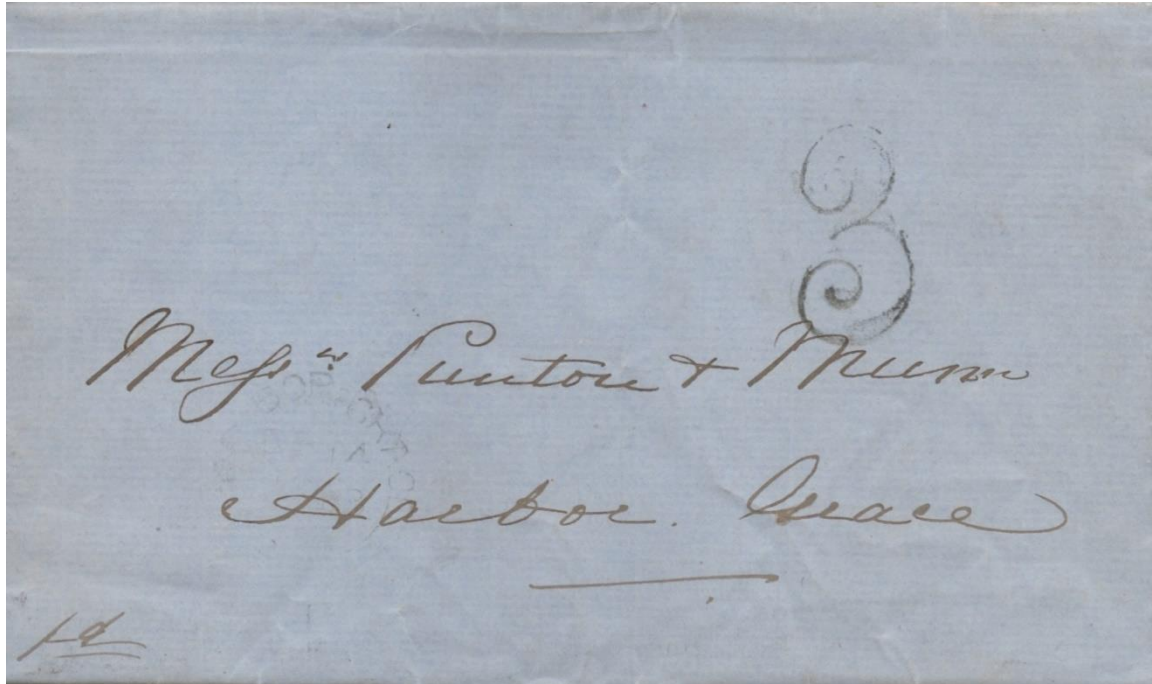 3
Messrs Punton & Munn
Harbor Grace